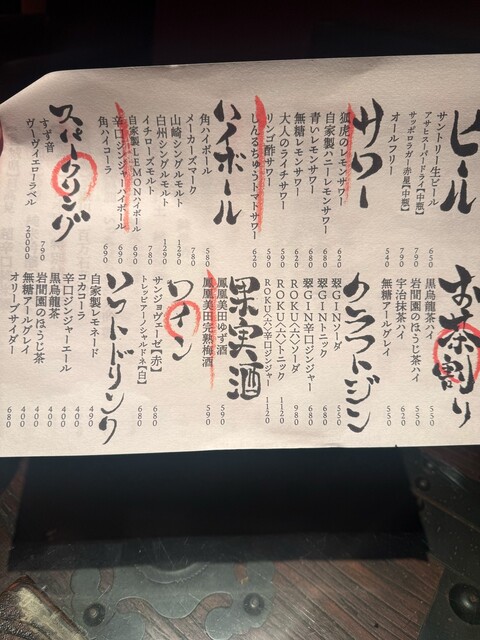 ビール
サントリー生ビール 650
アサヒスーパードライ【中瓶】 790
サッポロラガー赤星【中瓶】 790
オールフリー 540
サワー
狐虎のレモンサワー 620
自家製ハニーレモンサワー 680
青いレモンサワー 620
無糖レモンサワー 620
大人のライチサワー 590
リンゴ酢サワー 590
しんるちゅうトマトサワー 620
ハイボール
角ハイボール 580
メーカーズマーク 780
山崎シングルモルト 1290
白州シングルモルト 1290
イチローズモルト 780
自家製LEMONハイボール 690
辛口ジンジャーハイボール 690
角ハイコーラ 690
スパークリング
すず音 790
ヴーヴイエローラベル 20000
お茶割り
黒烏龍茶ハイ 550
岩間園のほうじ茶ハイ 550
宇治抹茶ハイ 620
無糖アールグレイ 550
クラフトジン
翠GINソーダ 550
翠GINトニック 680
翠GIN辛口ジンジャー 680
ROKU〈六〉ソーダ 980
ROKU〈六〉トニック 1120
ROKU〈六〉辛口ジンジャー 1120
果実酒
鳳凰美田ゆず酒 590
鳳凰美田完熟梅酒 590
ワイン
サンジョヴェーゼ【赤】 680
トレッビアーノシャルドネ【白】 680
ソフトドリンク
自家製レモネード 490
コカコーラ 400
辛口ジンジャーエール 400
黒烏龍茶 400
岩間園のほうじ茶 400
無糖アールグレイ 400
オリーブサイダー 680